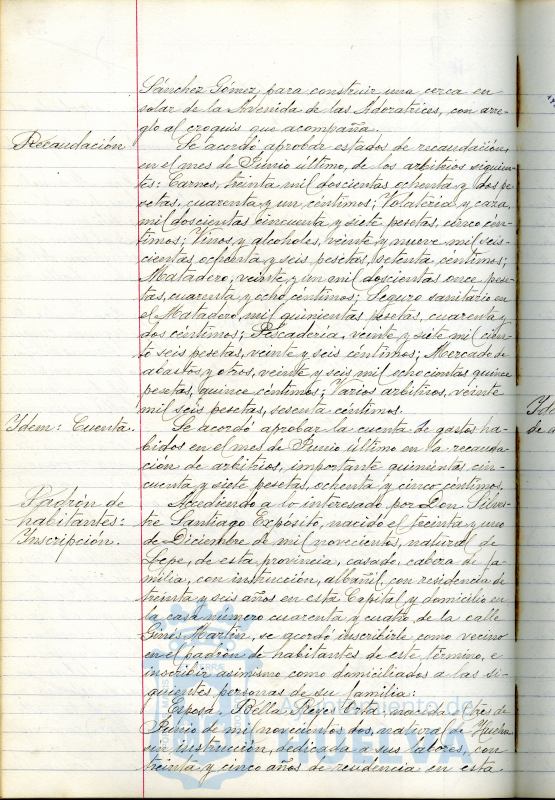 Sánchez Gómez, para construir una cerca en
solar de la Avenida de las Adoratrices, con arre-
glo al croquis que acompaña.
Recaudación
Se acordó aprobar estados de recaudación,
en el mes de Junio último, de los arbitrios siguien-
tes: Carnes, treinta mil doscientas ochenta y dos pe-
setas, cuarenta y un céntimos; Volatería y caza,
mil doscientas cincuenta y siete pesetas, cinco cén-
timos; Vinos y alcoholes, veinte y nueve mil seis-
cientas ochenta y seis pesetas, setenta céntimos;
Matadero, veinte y un mil doscientas once pese-
tas, cuarenta y ocho céntimos; Seguro sanitario en
el Matadero, mil quinientas pesetas, cuarenta y
dos céntimos; Pescadería, veinte y siete mil cien-
to seis pesetas, veinte y seis céntimos; Mercado de
abastos y otros, veinte y seis mil ochocientas quince
pesetas, quince céntimos; Varios arbitrios, veinte
mil seis pesetas, sesenta céntimos.
Idem: Cuenta.
Se acordó aprobar la cuenta de gastos ha-
bidos en el mes de Junio último en la recauda-
ción de arbitrios, importante quinientas cin-
cuenta y siete pesetas, ochenta y cinco céntimos.
Padrón de
habitantes:
Inscripción.
Accediendo a lo interesado por Don Silves-
tre Santiago Expósito, nacido el treinta y uno
de Diciembre de mil novecientos, natural de
Lepe, de esta provincia, casado, cabeza de fa-
milia, con instrucción, albañil, con residencia de
treinta y seis años en esta Capital y domicilio en
la casa número cuarenta y cuatro de la calle
Ginés Martín, se acordó inscribirle como vecino
en el padrón de habitantes de este término, e
inscribir asimismo como domiciliados a las si-
guientes personas de su familia:
Esposa, Bella Reyes Oria, nacida el tres de
Junio de mil novecientos dos, natural de Huelva,
sin instrucción, dedicada a sus labores, con
treinta y cinco años de residencia en esta
Ayuntamiento de
HUELVA
Ide
de a